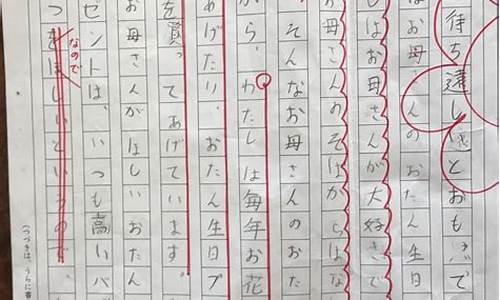 待ち遠し とおも
お母さんのおたん生日
しはお母さんが大好きで
お母さんのそばからはな
そんなお母さんのおた
から、わたしは毎年お花
あげたり、おたん生日プ
を買ってあげています。
お母さんがほしいおたん
ゼントは、いつも高いバ
なので
つをほしいというので、
(つづきは、うらに書